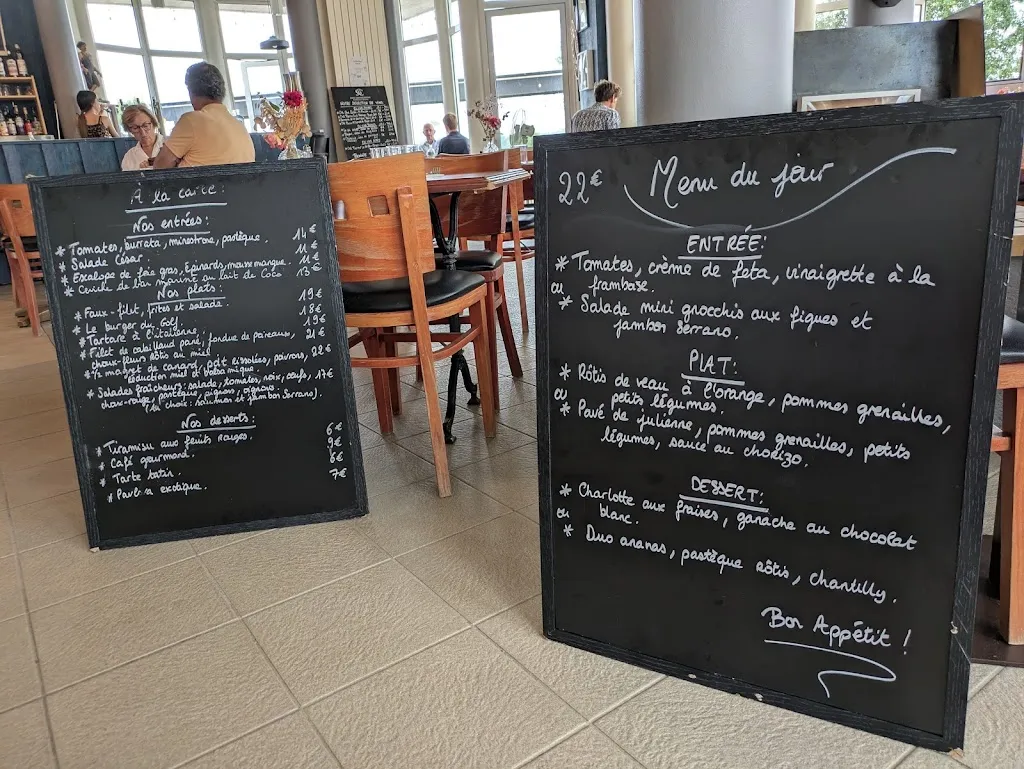 À la carte :
Nos entrées :
* Tomates, burrata, minestrone, pastèque. 14€
* Salade César. 11€
* Escalope de foie gras, Epinards, mousse mangue. 11€
* Ceviche de bar mariné au lait de Coco 13€
Nos plats :
* Faux-filet, frites et salade. 19€
* Le burger du Golf 18€
* Tartare à l'italienne, 19€
* Filet de cabillaud pané, fondue de poireaux, 21€
choux-fleurs rôtis au miel
* ½ magret de canard, pdt rissolées, poivrons, 22€
réduction miel et balsamique
* Salades fraîcheurs : salade, tomates, noix, oeufs, 17€
choux-rouge, pastèque, pignons, oignons.
(au choix : saumon et jambon Serrano).
Nos desserts :
* Tiramisu aux fruits rouges. 6€
* Café gourmand. 9€
* Tarte tatin. 6€
* exotique. 7€
22€ Menu du jour
ENTRÉE :
* Tomates, crème de feta, vinaigrette à la
ou framboise.
* Salade mini gnocchis aux figues et
jambon serrano.
PLAT :
* Rôtis de veau à l'orange, pommes grenailles,
ou petits légumes.
* Pavé de julienne, pommes grenailles, petits
légumes, sauce au chorizo.
DESSERT :
* Charlotte aux fraises, ganache au chocolat
ou blanc.
* Duo ananas, pastèque rôtis, chantilly.
Bon Appétit !